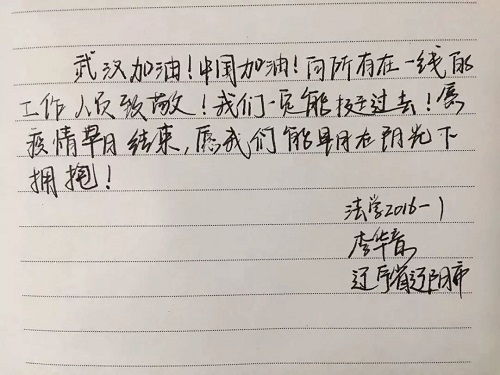 武汉加油!中国加油!向所有在一线的
工作人员致敬!我们一定能挺过去!愿
疫情早日结束,愿我们能早日在阳光下
拥抱!
法学2016-1
李华
辽宁省辽阳市